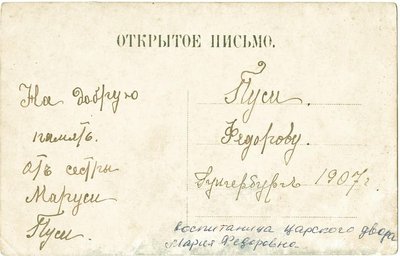 ОТКРЫТОЕ ПИСЬМО.
На добрую
память.
отъ сестры
Маруси
Пуси.
Пуси.
Федорову.
Гунгербургъ 1907 г.
воспитаница царского двора
Мария Федоровна